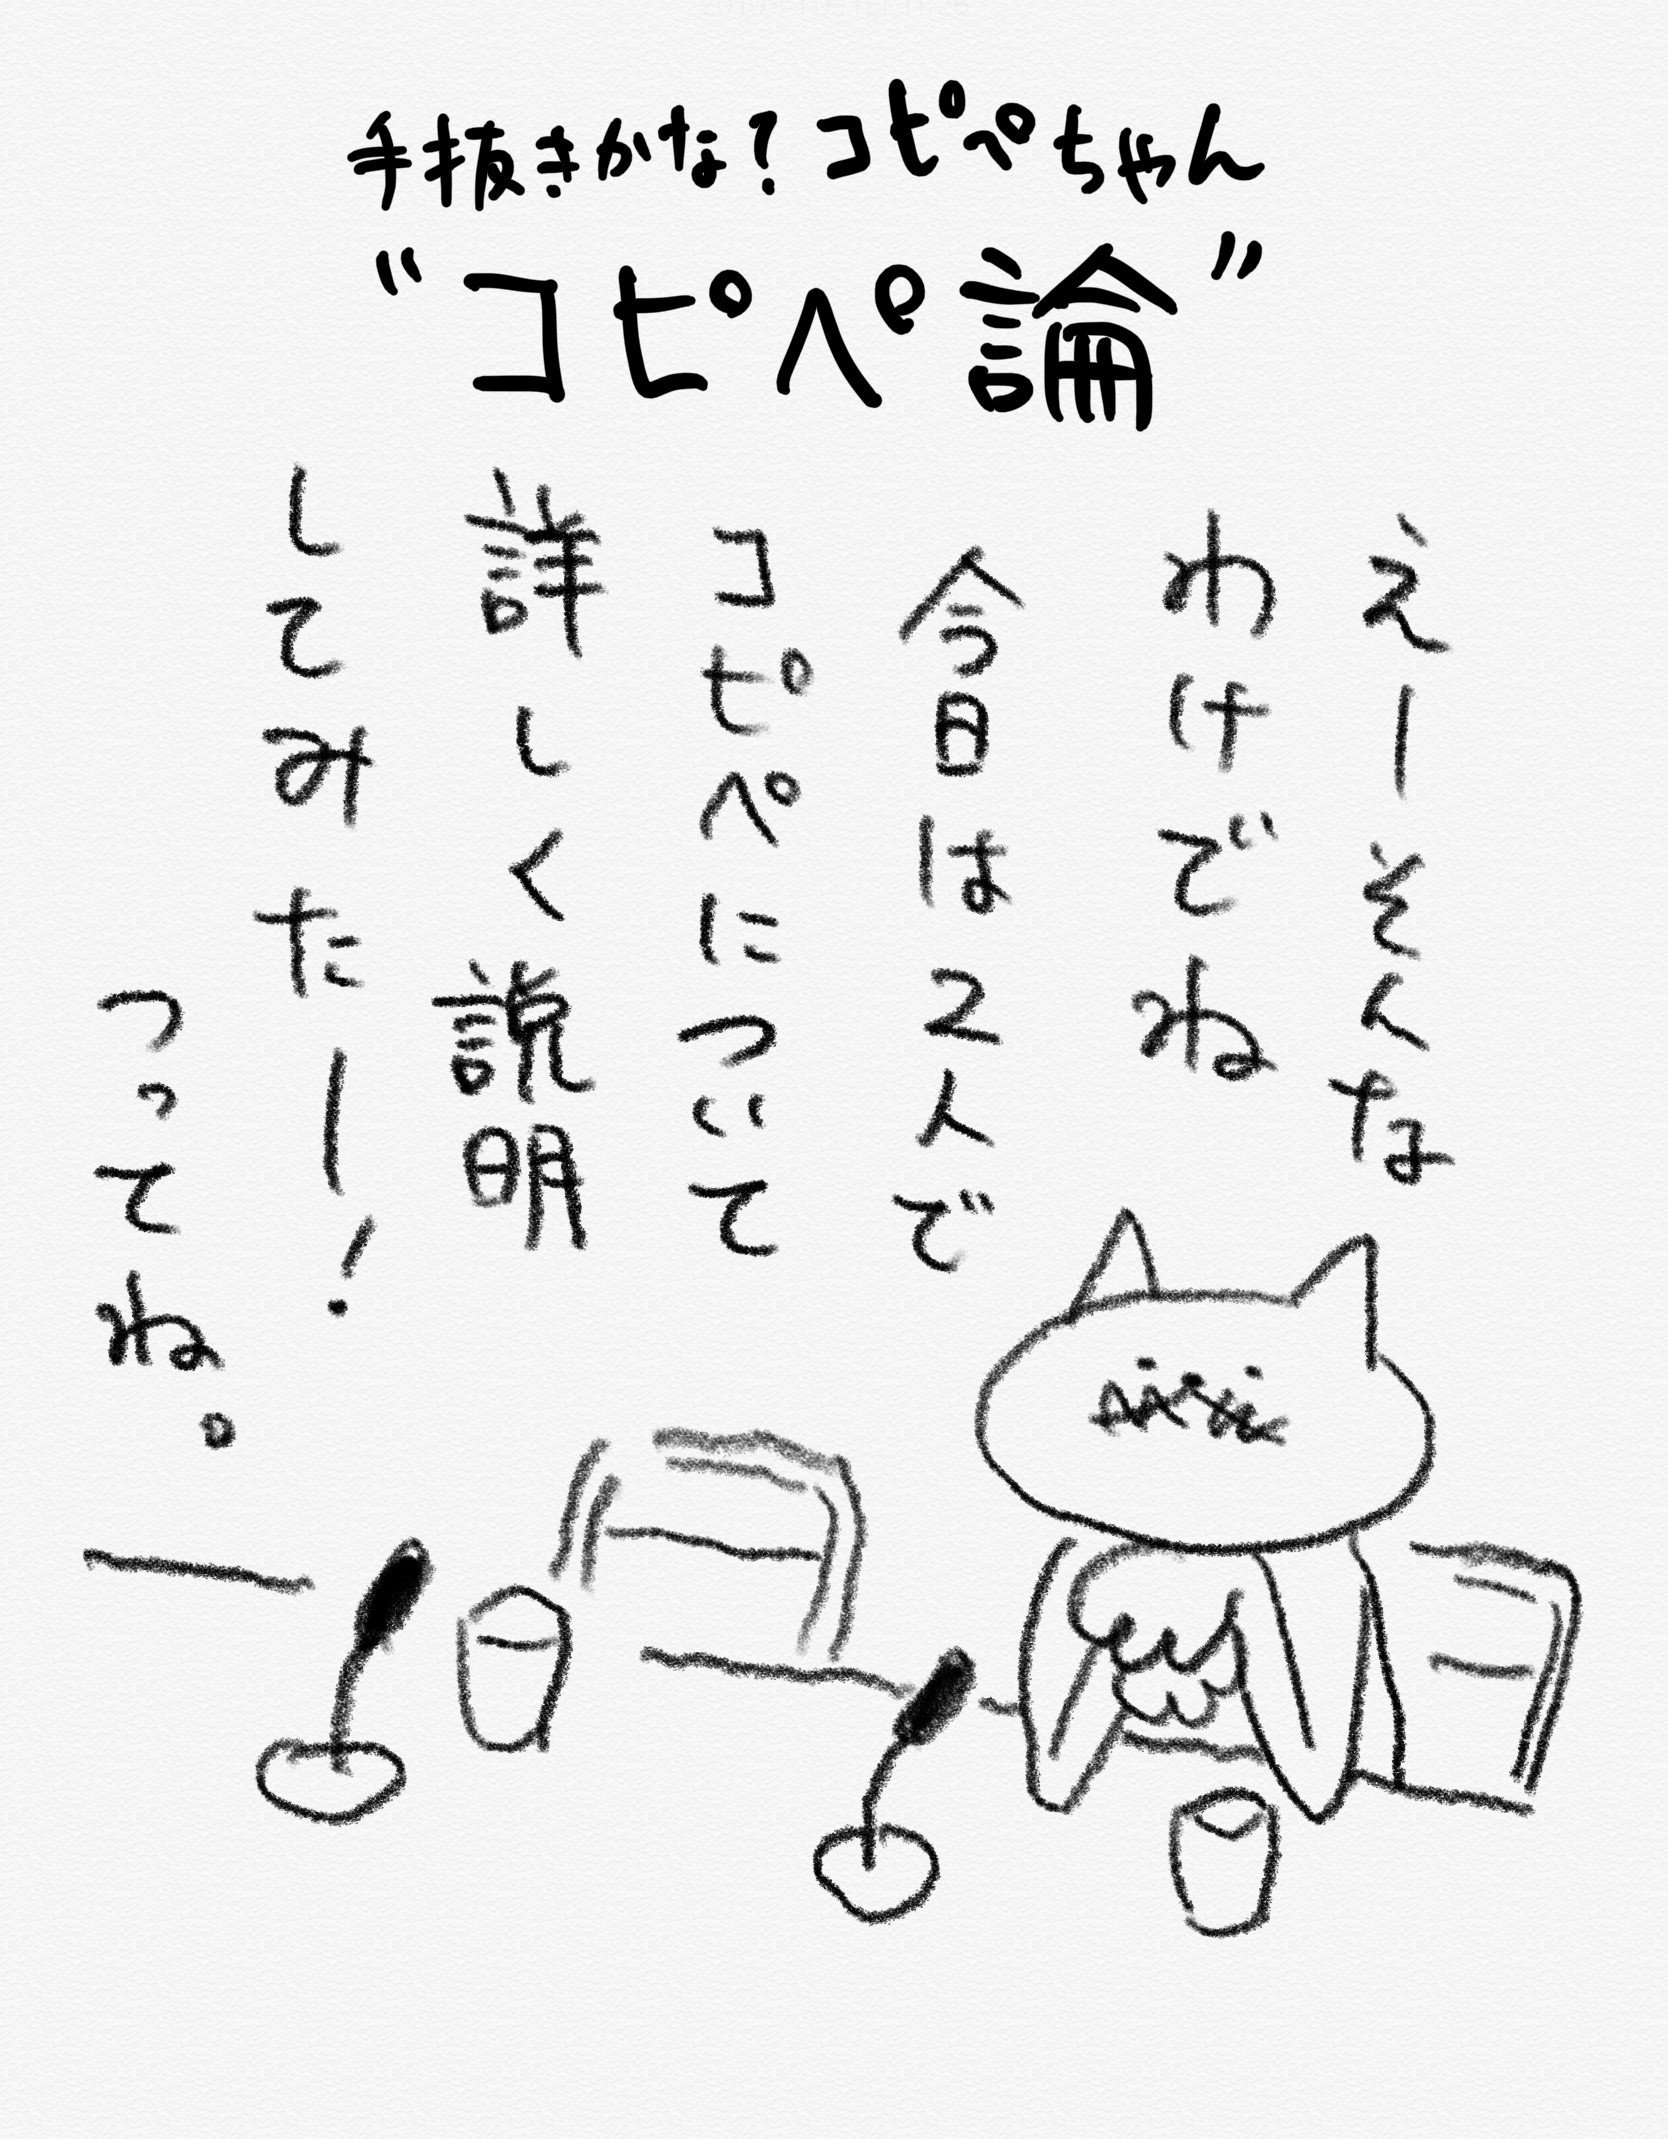 手抜きかな?コピペちゃん
“コピペ論”
えーそんな
わけでね
今日は2人で
コピペについて
詳しく説明
してみたー!
つってね。